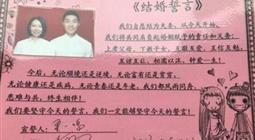 《结婚誓言》
我们自愿结为夫妻,从今天开始,
我们将共同肩负起婚姻赋予的责任和义务:
上孝父母,下教子女,互敬互爱,互信互勉,
互谅互让,相濡以沫,钟爱一生!
今后,无论顺境还是逆境,无论富有还是贫穷,
无论健康还是疾病,无论青春还是年老,我们都风雨同舟,
患难与共,终生相伴!
我们要坚守今天的誓言,我们一定能够坚守今天的誓言!
宣誓人: